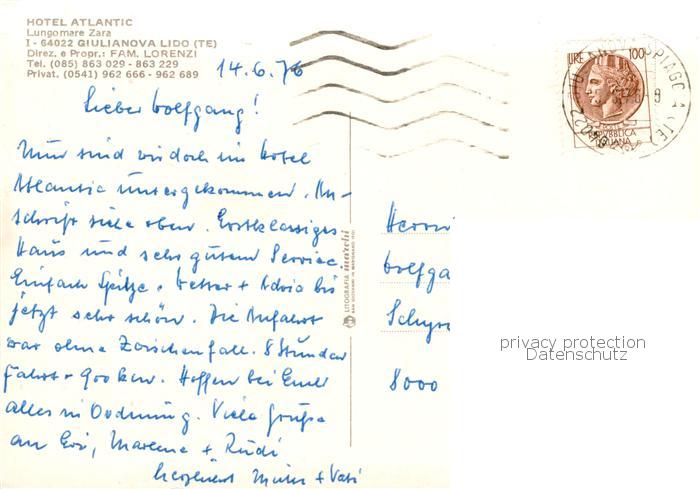 HOTEL ATLANTIC
Lungomare Zara
I - 64022 GIULIANOVA LIDO (TE)
Direz. e Propr.: FAM. LORENZI
Tel. (085) 863 029 - 863 229
Privat. (0541) 962 666 - 962 689
14.6.76
Lieber Wolfgang!
Nun sind wir doch im Hotel
Atlantic untergekommen. An-
schrift siehe oben. Erstklassiges
Haus und sehr gutem Service.
Einfach Spitze. Wetter + Adria bis
jetzt sehr schön. Die Anfahrt
war ohne Zwischenfall. 8 Stunden
Fahrt + 900 km. Hoffen bei Euch
alles in Ordnung. Viele Grüße
an + Rudi
+ Vati
LIRE 100
REPVBBLICA
ITALIANA
LITOGRAFIA marchi
Herrn
Wolfga
8000
privacy protection
Datenschutz